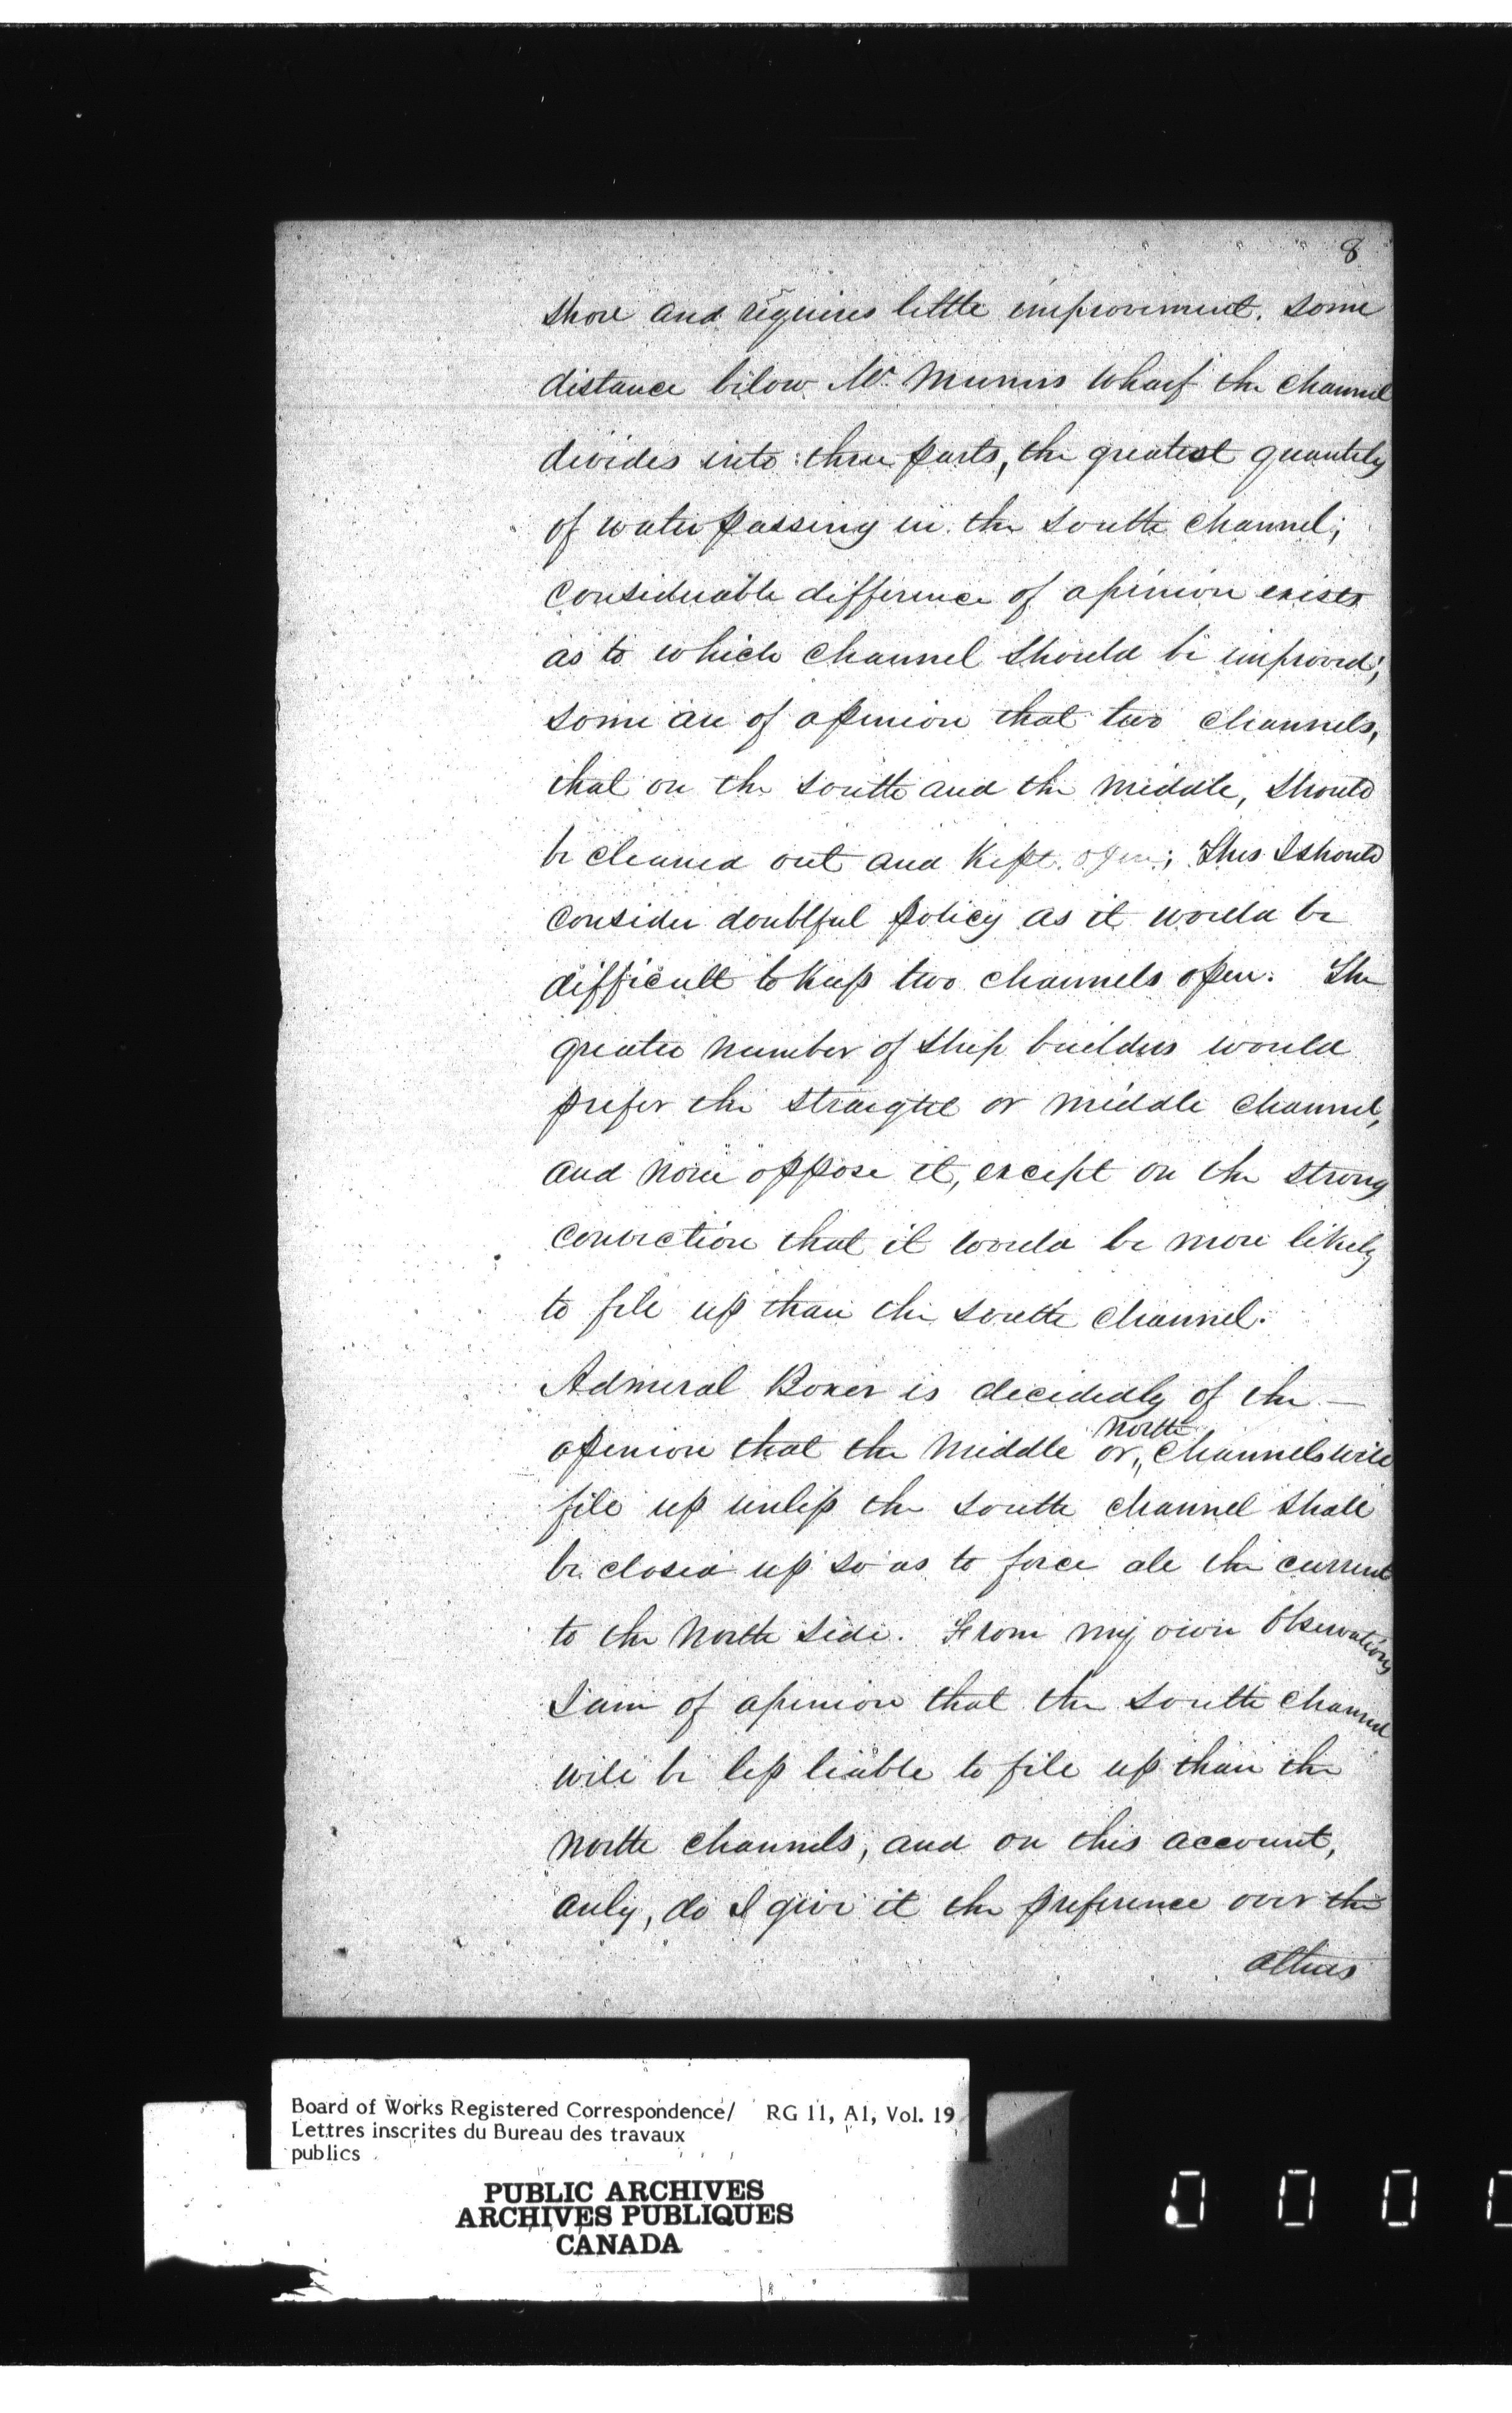 8
shore and requires little improvement. Some
distance below Mr. Munns Wharf the channel
divides into three parts, the greatest quantity
of water passing in the South Channel;
Considerable difference of opinion exists
as to which Channel should be improved;
some are of opinion that two channels,
that on the South and the middle, should
be cleaned out and Kept open; This I should
consider doubtful policy as it would be
difficult to keep two channels open. The
greater number of Ship builders would
prefer the straight or middle channel,
and none oppose it, except on the strong
conviction that it would be more likely
to fill up than the South channel.
Admiral Boxer is decidedly of the —
north
opinion that the middle or, channels will
fill up unless the South channel shall
be closed up so as to force all the current
to the North Side. From my own observations
I am of opinion that the South Channel
will be less liable to fill up than the
North channels, and on this account,
only, do I give it the preference over the
others
Board of Works Registered Correspondence/ RG 11, A1, Vol. 19
Lettres inscrites du Bureau des travaux
publics
PUBLIC ARCHIVES
ARCHIVES PUBLIQUES
CANADA
0 0 0 0